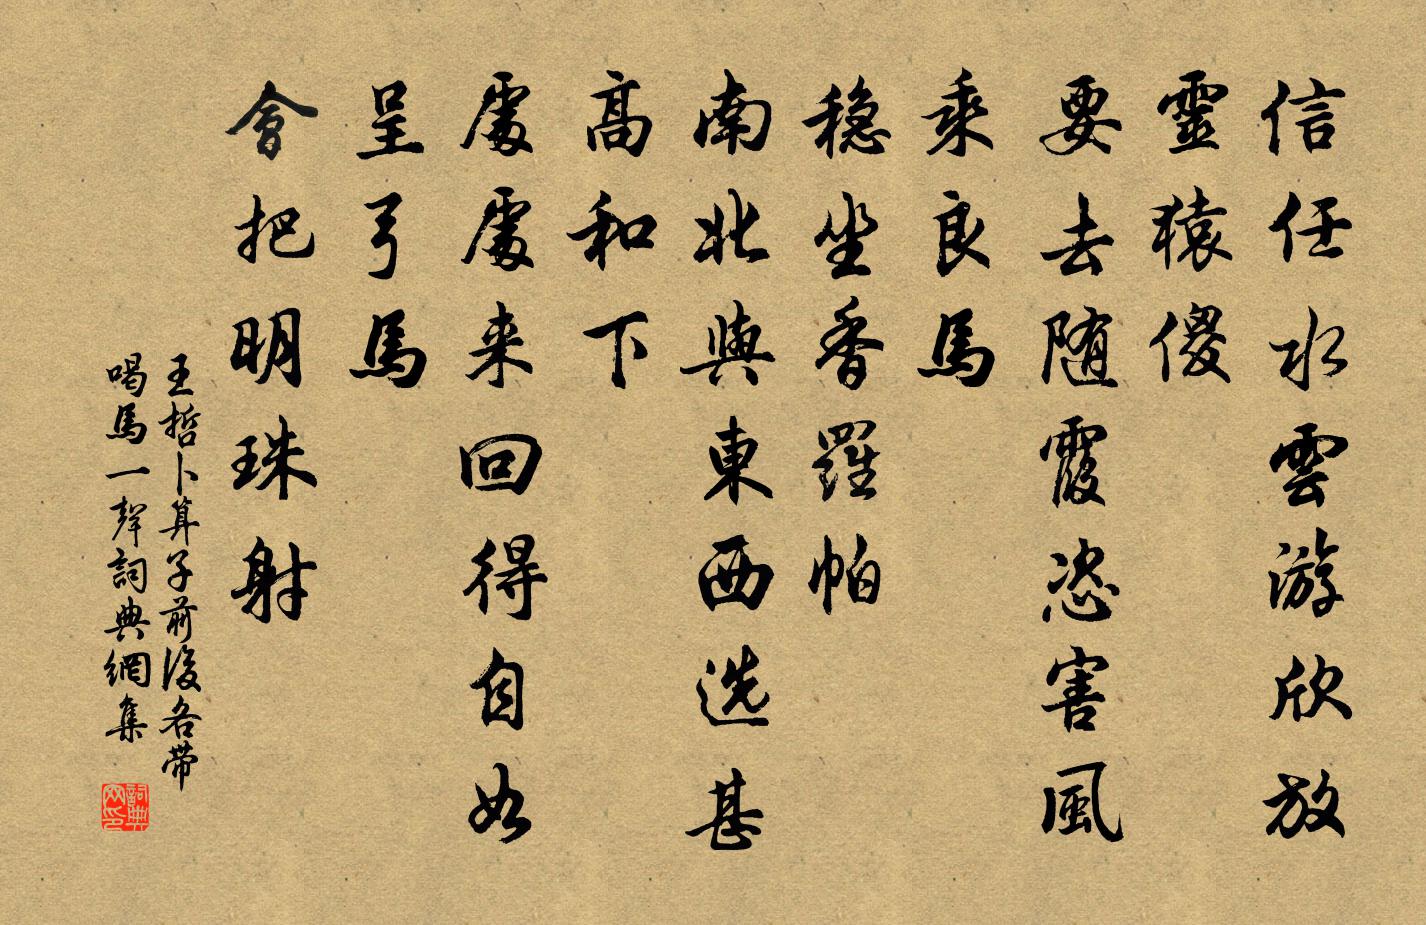 信任水雲游欣放
靈猿傻
要去随霞恣害風
乘良馬
穩坐香羅帕
南北與東西选甚
高和下
處處来回得自如
呈弓馬
會把明珠射
王哲卜算子前後各带
喝馬一聲詞典網集
詞典
网印